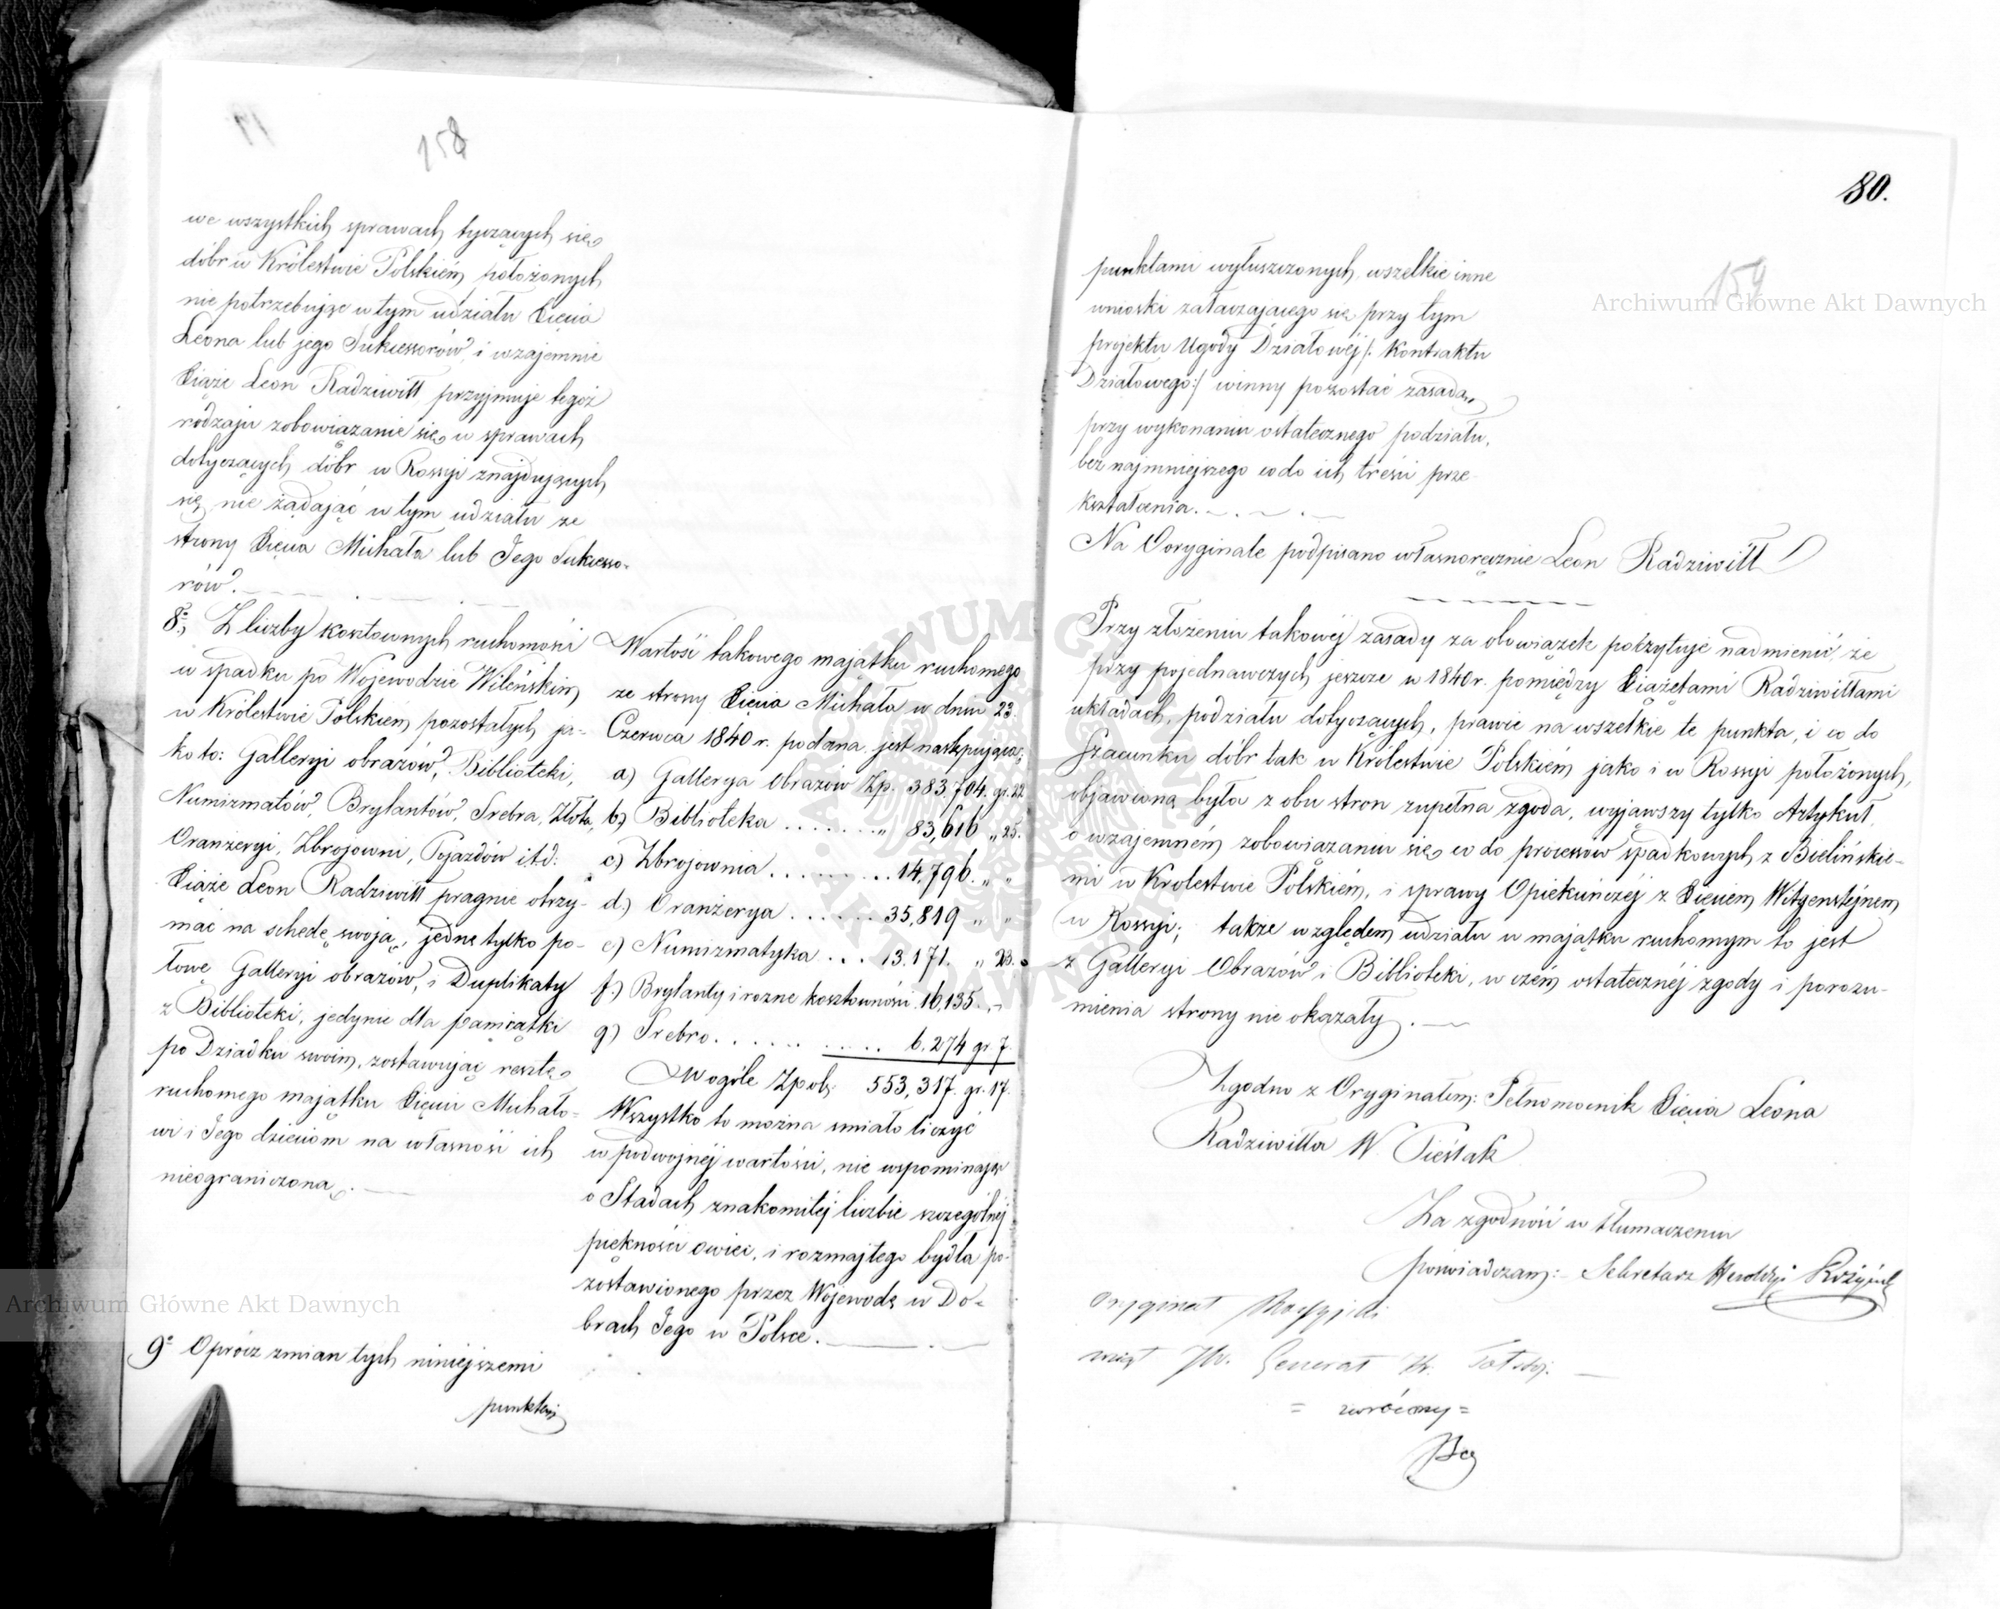 158
we wszystkich sprawach tyczących się
dóbr w Królestwie Polskiém położonych
nie potrzebując w tym udziału Xięcia
Leona lub jego Sukcessorów i wzajemnie
Xiąże Leon Radziwiłł przyjmuje tegoż
rodzaju zobowiązanie się w sprawach
dotyczących dóbr w Rossyi znajdujących
się, nie żądając w tym udziału ze
strony Xięcia Michała lub Jego Sukcesso-
rów.
8º, Z liczby kosztownych ruchomości
w spadku po Wojewodzie Wileńskim
w Królestwie Polskiém pozostałych ja-
ko to: Galleryi obrazów, Biblioteki,
Numizmatów, Brylantów, Srebra, Złota,
Oranżeryi, Zbrojowni, Pojazdów itd:
Xiąże Leon Radziwiłł pragnie otrzy-
mać na schedę swoją, jednę tylko po-
łowę Galleryi obrazów, i Duplikaty
z Biblioteki, jedynie dla pamiątki
po Dziadku swoim, zostawując resztę
ruchomego majątku Xięciu Michało-
wi i Jego dzieciom na własność ich
nieograniczoną.
Wartość takowego majątku ruchomego
ze strony Xięcia Michała w dniu 23
Czerwca 1840 r. podana jest następująca;
a) Gallerya Obrazów Zp. 383,704. gr. 22
b) Biblioteka . . . . . . . „ 83,616 „ 25.
c) Zbrojownia . . . . . . . . . 14,796. „ „
d.) Oranżerya . . . . . . 35,819 „ „
e) Numizmatyka . . . 13.171. „ 23.
f.) Brylanty i rozne kosztownosci 16,135. „
g) Srebro . . . . . . . . . . 6.274 gr. 7.
Wogóle Zpol. 553,317. gr. 17.
Wszystko to można smiało liczyć
w podwojnéj wartości, nie wspominając
o Stadach znakomitéj liczbie szczególnéj
piękności owiec, i rozmajtego bydła po-
zostawionego przez Wojewodę w Do-
brach Jego w Polsce.
9º Oprócz zmian tych niniejszemi
punktami
80.
159
punktami wyłuszczonych wszelkie inne
wnioski załączającego się przy tym
projektu Ugody Działowéj /: Kontraktu
Działowego:/ winny pozostać zasadą,
przy wykonaniu ostatecznego podziału,
bez najmniejszego co do ich treści prze-
kształcenia.
Na Ooryginale podpisano własnoręcznie Leon Radziwiłł
Przy złożeniu takowéj zasady za obowiązek poczytuję nadmienić, że
przy pojednawczych jeszcze w 1840 r. pomiędzy Xiążętami Radziwiłłami
układach, podziału dotyczących, prawie na wszelkie te punkta, i co do
szacunku dóbr tak w Królestwie Polskiém jako i w Rossyi położonych,
objawioną była z obu stron zupełna zgoda, wyjąwszy tylko Artykuł
o wzajemném zobowiązaniu się co do processów spadkowych z Bielińskie-
mi w Krolestwie Polskiém, i sprawy Opiekuńczéj z Xięciem Witgensztejnem
w Rossyi; także względem udziału w majątku ruchomym to jest
z Galleryi Obrazów i Biblioteki, w czém ostatecznéj zgody i porozu-
mienia strony nie okazały.
Zgodno z Oryginałem: Pełnomocnik Xięcia Leona
Radziwiłła W. Pieślak
Za zgodność w tłumaczeniu
poświadczam: Sekretarz Heroldyi
Oryginał Rossyjski
wziął Jw. Generał
= zwrócony =
Archiwum Główne Akt Dawnych
Archiwum Główne Akt Dawnych